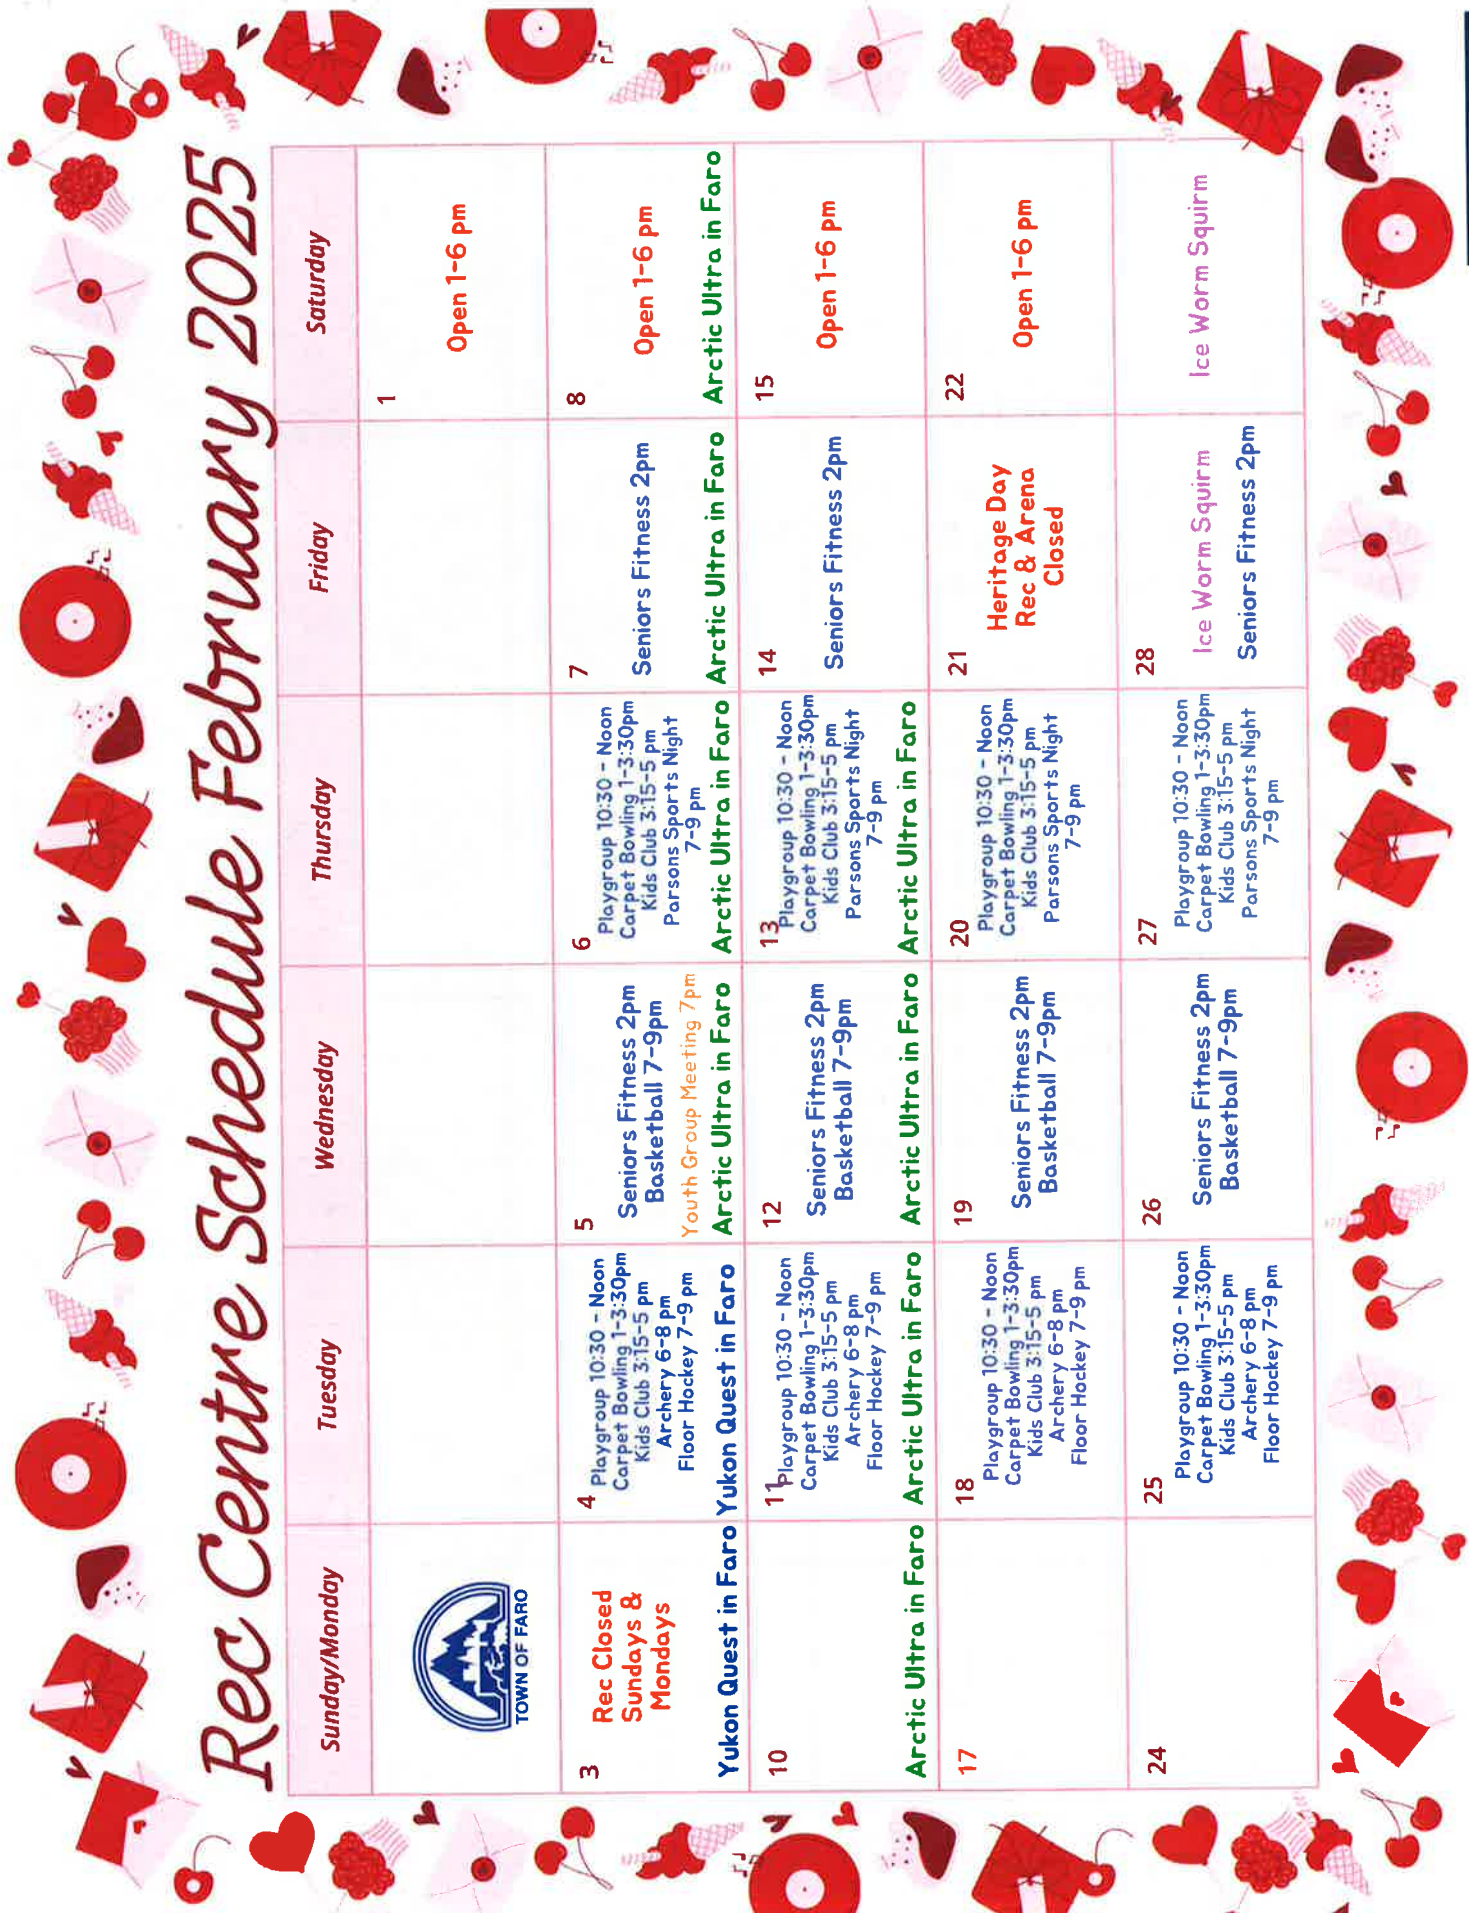 Rec Centre Schedule February 2025
Sunday/Monday
Tuesday
Wednesday
Thursday
Friday
Saturday
TOWN OF FARO
1
Open 1-6 pm
3
Rec Closed
Sundays &
Mondays
Yukon Quest in Faro
4
Playgroup 10:30 - Noon
Carpet Bowling 1-3:30pm
Kids Club 3:15-5 pm
Archery 6-8 pm
Floor Hockey 7-9 pm
Yukon Quest in Faro
5
Seniors Fitness 2pm
Basketball 7-9pm
Youth Group Meeting 7pm
Arctic Ultra in Faro
6
Playgroup 10:30 - Noon
Carpet Bowling 1-3:30pm
Kids Club 3:15-5 pm
Parsons Sports Night
7-9 pm
Arctic Ultra in Faro
7
Seniors Fitness 2pm
Arctic Ultra in Faro
8
Open 1-6 pm
Arctic Ultra in Faro
10
Arctic Ultra in Faro
11
Playgroup 10:30 - Noon
Carpet Bowling 1-3:30pm
Kids Club 3:15-5 pm
Archery 6-8 pm
Floor Hockey 7-9 pm
Arctic Ultra in Faro
12
Seniors Fitness 2pm
Basketball 7-9pm
Arctic Ultra in Faro
13
Playgroup 10:30 - Noon
Carpet Bowling 1-3:30pm
Kids Club 3:15-5 pm
Parsons Sports Night
7-9 pm
Arctic Ultra in Faro
14
Seniors Fitness 2pm
15
Open 1-6 pm
17
18
Playgroup 10:30 - Noon
Carpet Bowling 1-3:30pm
Kids Club 3:15-5 pm
Archery 6-8 pm
Floor Hockey 7-9 pm
19
Seniors Fitness 2pm
Basketball 7-9pm
20
Playgroup 10:30 - Noon
Carpet Bowling 1-3:30pm
Kids Club 3:15-5 pm
Parsons Sports Night
7-9 pm
21
Heritage Day
Rec & Arena
Closed
22
Open 1-6 pm
24
25
Playgroup 10:30 - Noon
Carpet Bowling 1-3:30pm
Kids Club 3:15-5 pm
Archery 6-8 pm
Floor Hockey 7-9 pm
26
Seniors Fitness 2pm
Basketball 7-9pm
27
Playgroup 10:30 - Noon
Carpet Bowling 1-3:30pm
Kids Club 3:15-5 pm
Parsons Sports Night
7-9 pm
28
Ice Worm Squirm
Seniors Fitness 2pm
Ice Worm Squirm